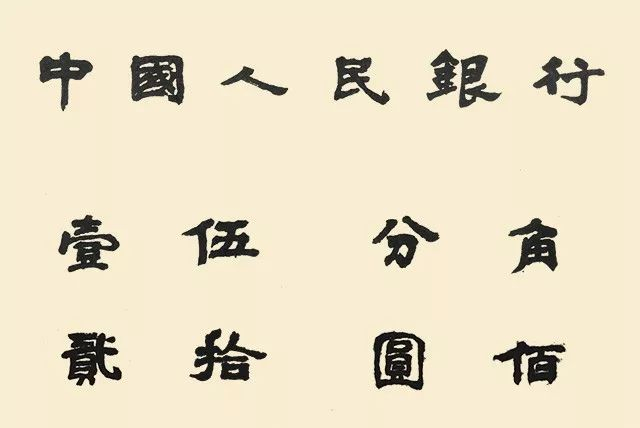 中國人民銀行
壹伍 分角
貳拾 圓佰